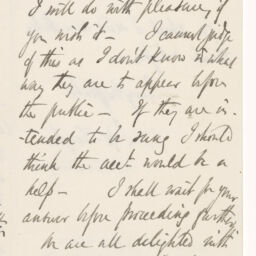 I will do with pleasure, if
you wish it - I cannot judge
of this as I don't know in what
way they are to appear before
the public - If they are in-
-tended to be sung I should
think the acct. would be a
help - I shall wait for your
answer before proceeding further
We are all delighted with